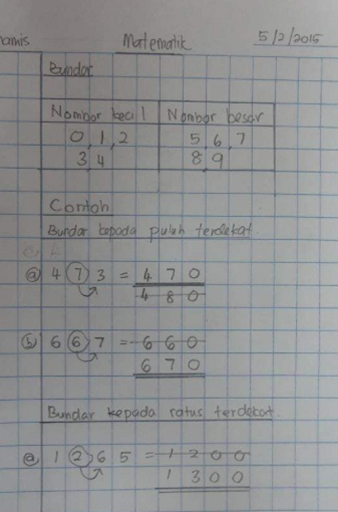 Matematik 5/2/2015
Bundar
Nombor kecil Nombor besar
0, 1, 2 5, 6, 7
3, 4 8, 9
Contoh
Bundar kepada puluh terdekat.
a) 4 7 3 = 4 7 0
4 8 0
b) 6 6 7 = 6 6 0
6 7 0
Bundar kepada ratus terdekat.
a) 1 2 6 5 = 1 2 0 0
1 3 0 0